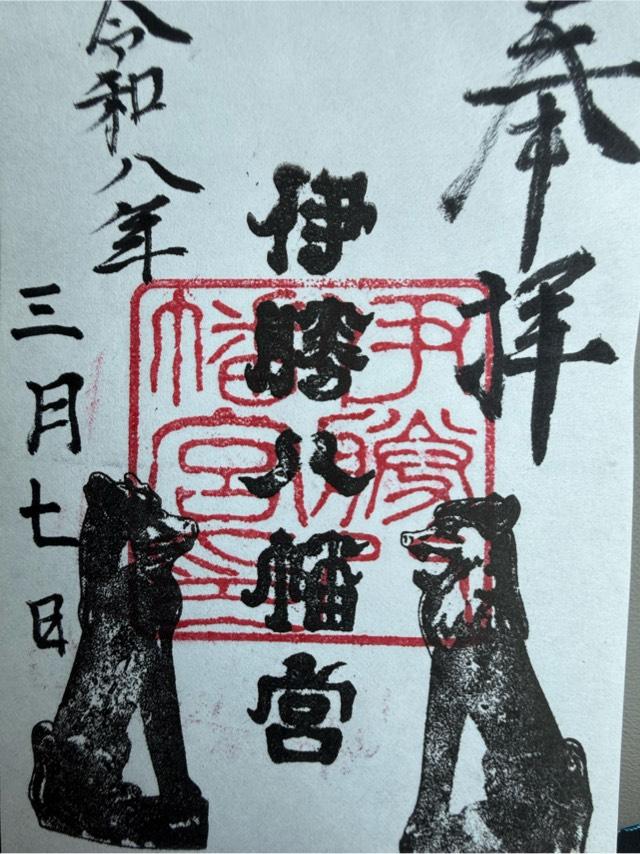 奉拝
伊勝八幡宮
伊勝八幡宮印
令和八年
三月七日